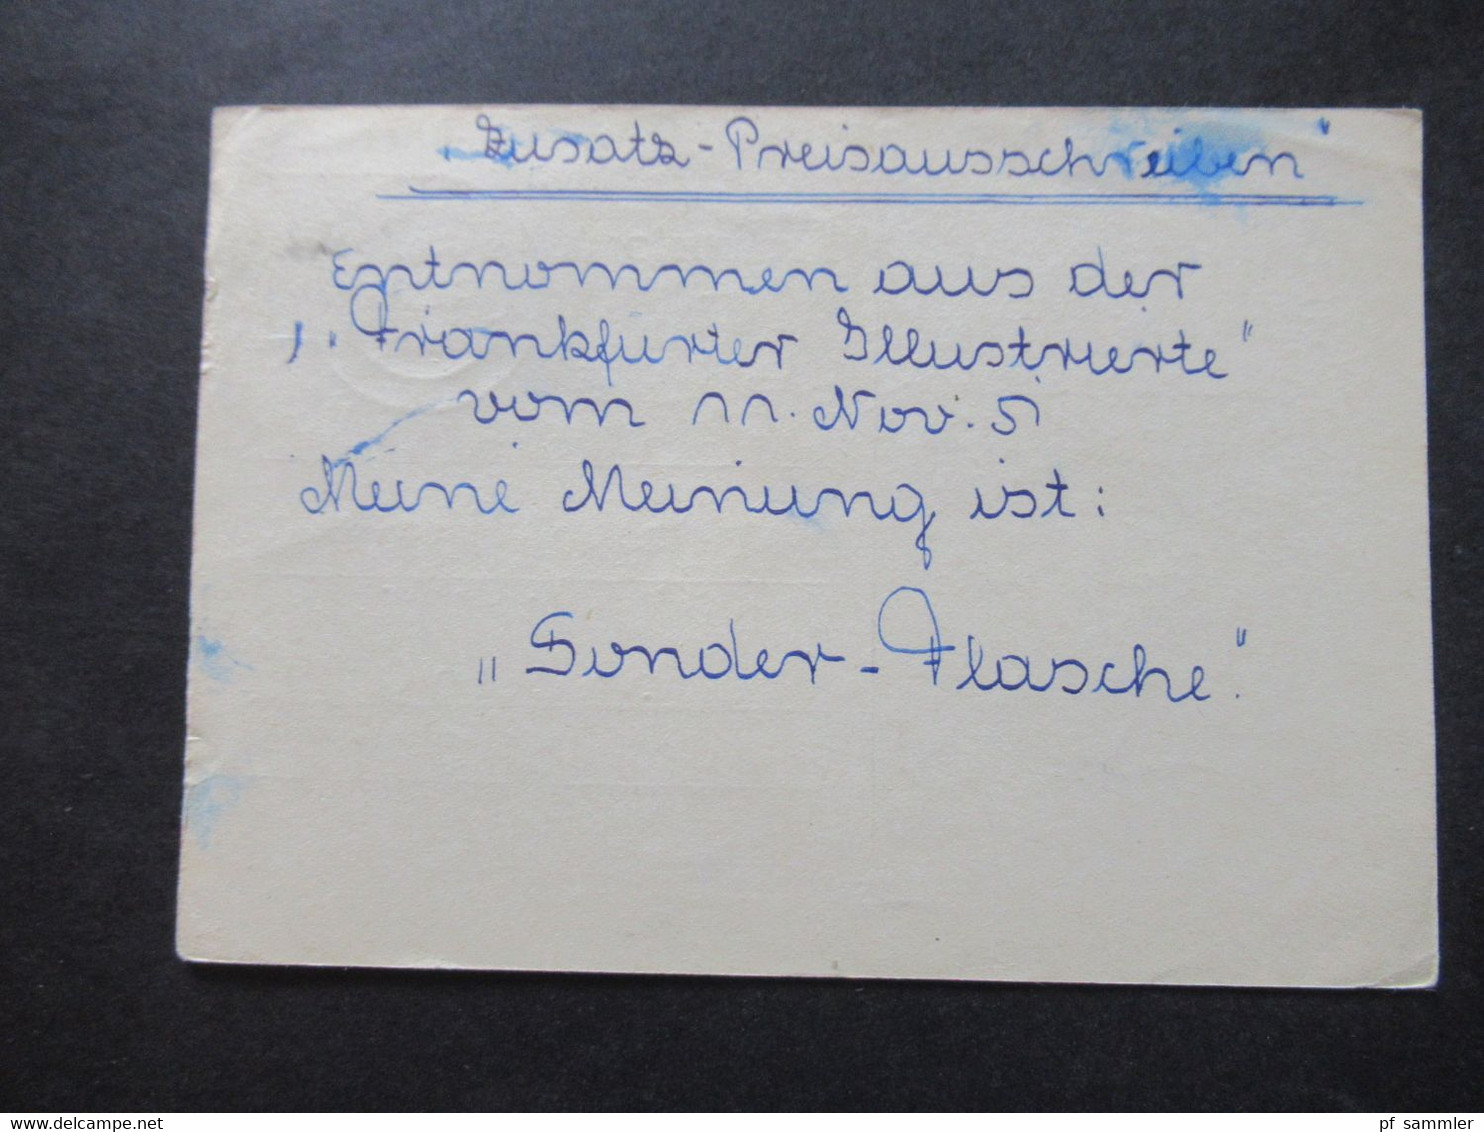 „Zusatz-Preisausschreiben"
Entnommen aus der
„Frankfurter Illustrierte"
vom 11. Nov. 51
Meine Meinung ist:
„Sonder-Flasche".
www.delcampe.net
pf_sammler